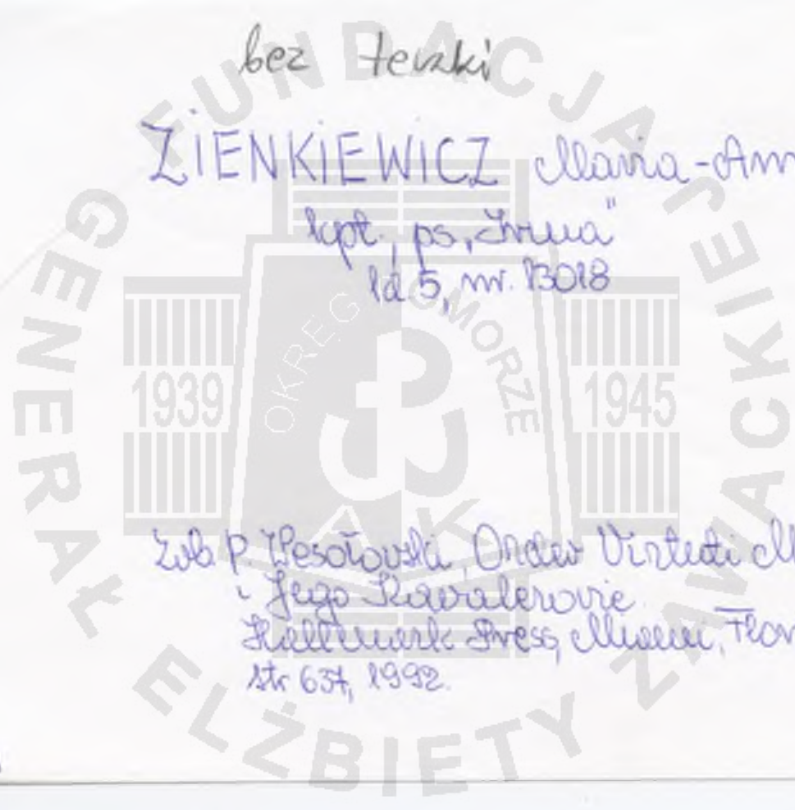 bez teczki
ZIENKIEWICZ Maria-Ann
kpt., ps. „Irena"
kl 5, nr. 13018
Zob. P. Wesołowski Order Virtuti M
i Jego Kawalerowie.
Hallmark Press, Miami, Flor
str 637, 1992.
FUNDACJA GENERAŁ ELŻBIETY ZAWACKIEJ
OKRĘG POMORZE
1939
1945
AK